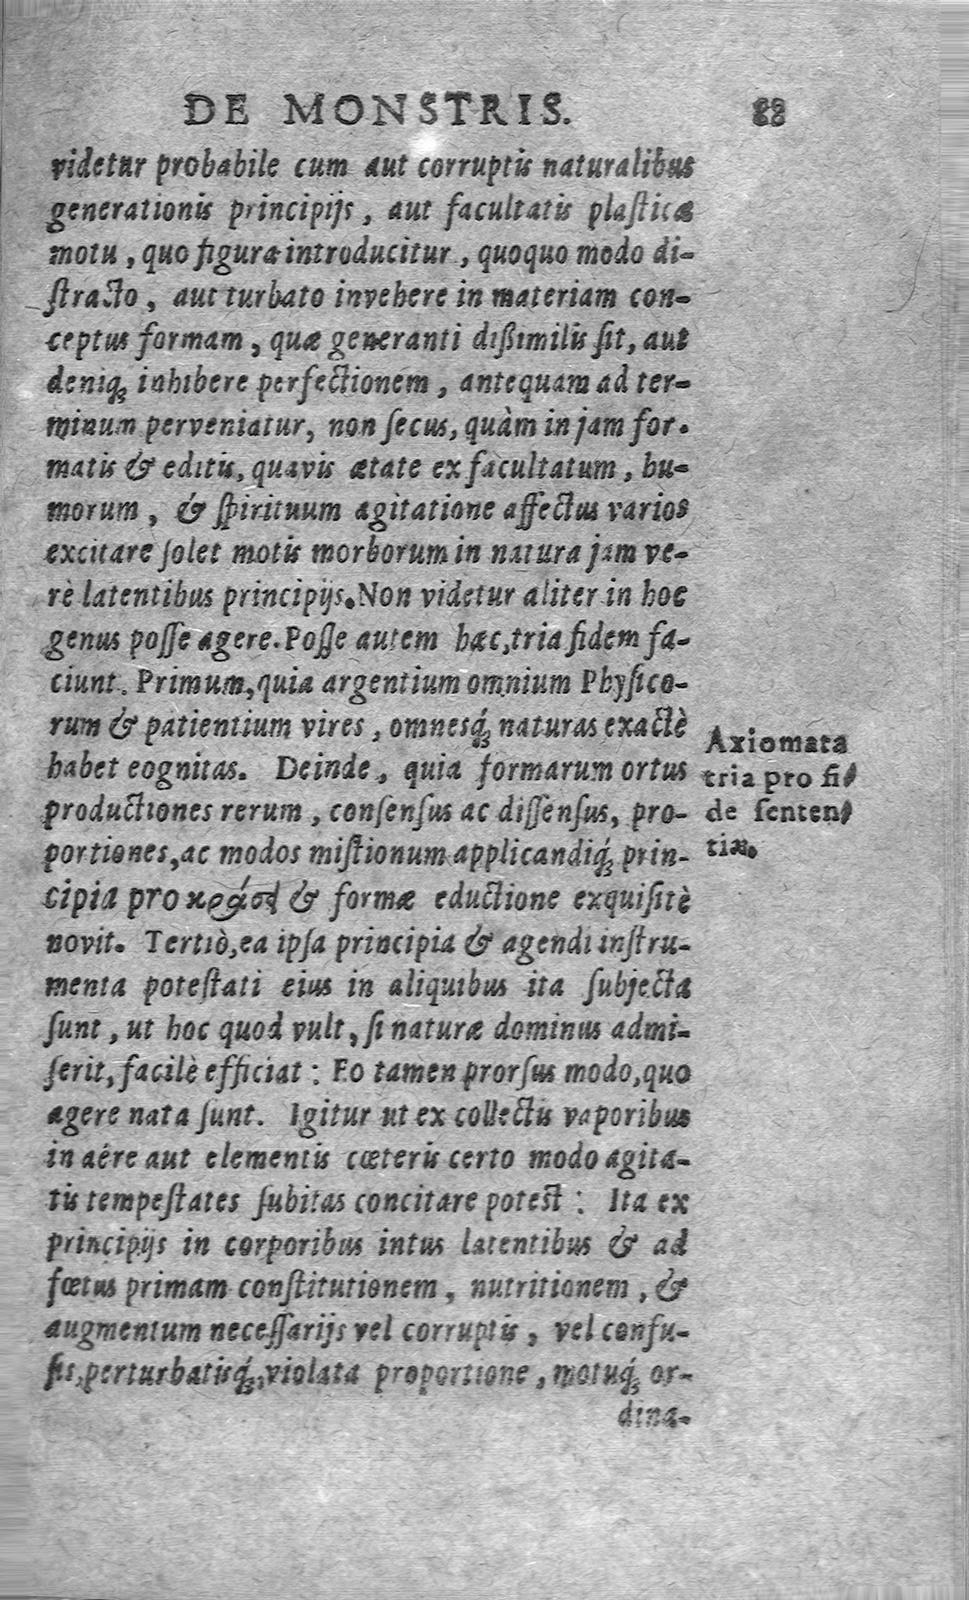 DE MONSTRIS. 88
videtur probabile cum aut corruptis naturalibus
generationis principijs, aut facultatis plasticæ
motu, quo figura introducitur, quoquo modo di-
stracto, aut turbato invehere in materiam con-
ceptus formam, quæ generanti dißimilis sit, aut
deniq; inhibere perfectionem, antequam ad ter-
minum perveniatur, non secus, quàm in jam for-
matis & editis, quavis ætate ex facultatum, hu-
morum, & spirituum agitatione affectus varios
excitare solet motis morborum in natura jam ve-
rè latentibus principijs. Non videtur aliter in hoc
genus posse agere. Posse autem hæc, tria fidem fa-
ciunt. Primum, quia argentium omnium Physico-
rum & patientium vires, omnesq́; naturas exactè
habet eognitas. Deinde, quia formarum ortus
productiones rerum, consensus ac dissensus, pro-
portiones, ac modos mistionum applicandiq́; prin-
cipia pro κράσ & formæ eductione exquisitè
novit. Tertiò, ea ipsa principia & agendi instru-
menta potestati eius in aliquibus ita subjecta
sunt, ut hoc quod vult, si naturæ dominus admi-
serit, facilè efficiat: Eo tamen prorsus modo, quo
agere nata sunt. Igitur ut ex collectis vaporibus
in aére aut elementis cœteris certo modo agita-
tis tempestates subitas concitare potest: Ita ex
principijs in corporibus intus latentibus & ad
fœtus primam constitutionem, nutritionem, &
augmentum necessarijs vel corruptis, vel confu-
sis, perturbatisq́;, violata proportione, motuq́; or-
dina-
Axiomata
tria pro fi-
de senten-
tiæ.